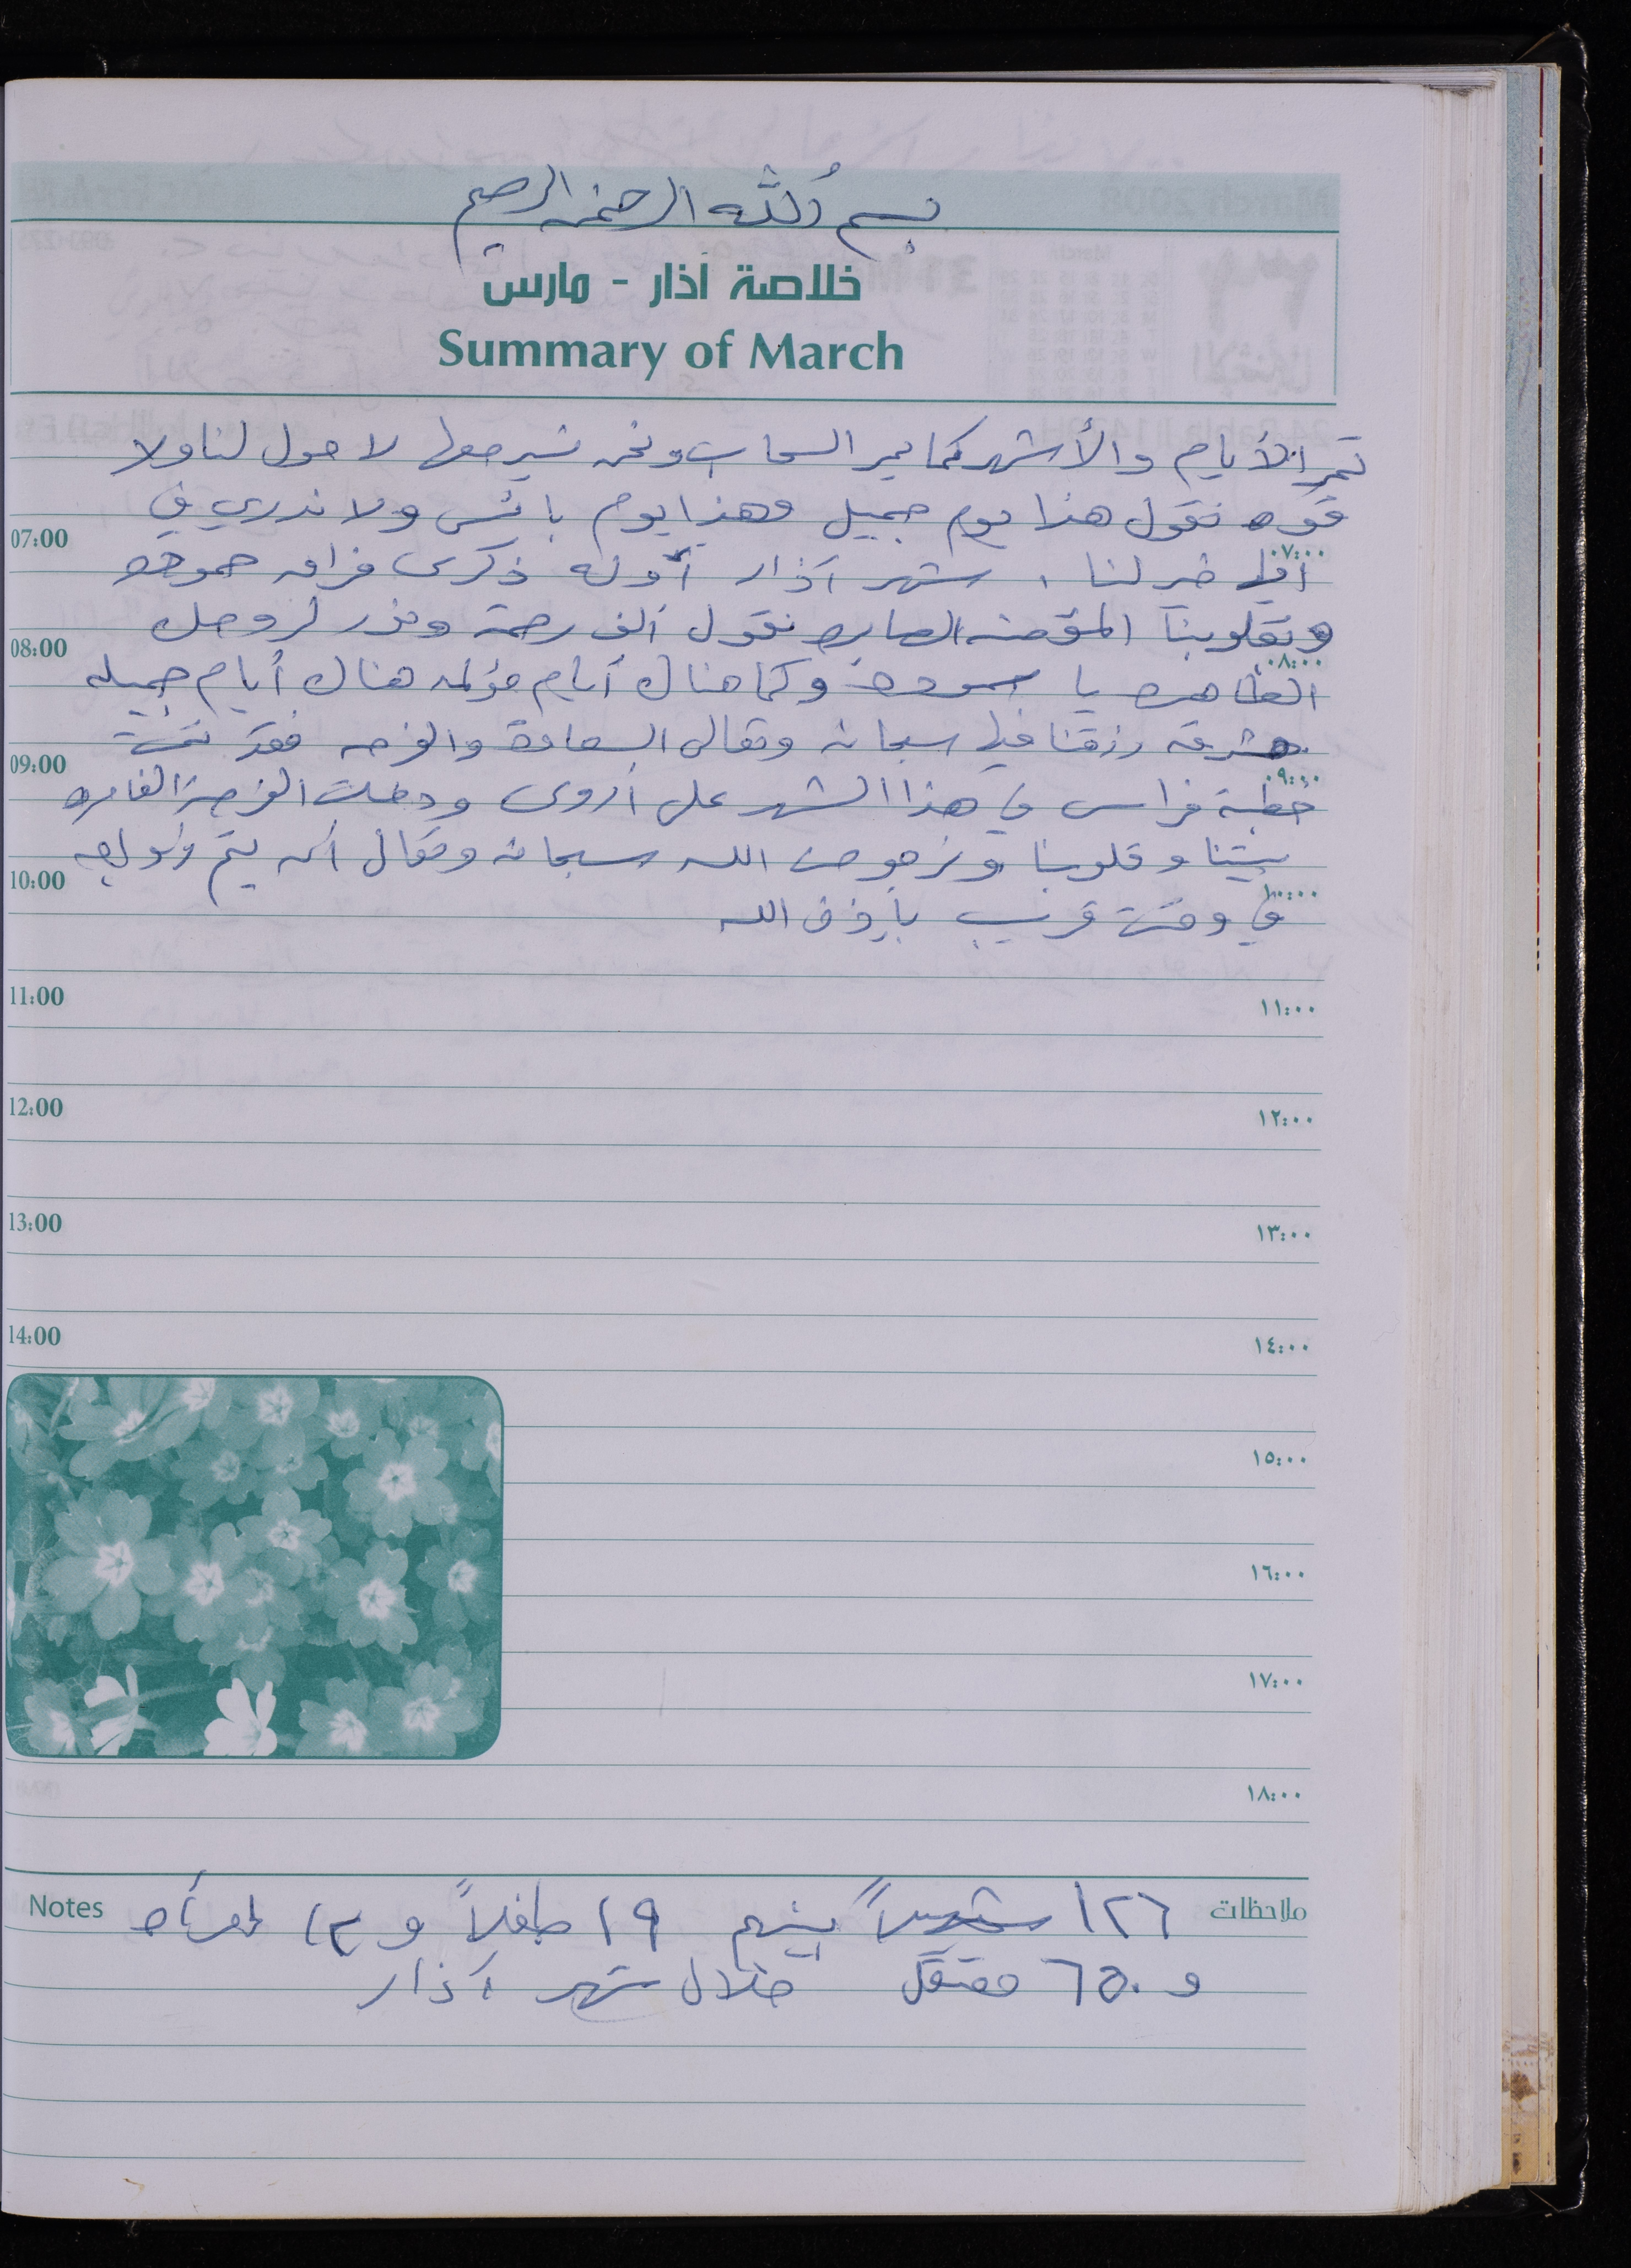 بسم الله الرحمن الرحيم
خلاصة آذار - مارس
Summary of March
تمر الأيام والأشهر كما يمر السحاب ونحن نسير معها لا حول لنا ولا
قوه نقول هذا يوم جميل وهذا يوم بائس ولا ندري في
07:00 ٠٧:٠٠
أيها خير لنا ، شهر آذار أوله ذكرى فراق حموده
وبقلوبنا المؤمنه الصابره نقول ألف رحمة ونور لروحك
08:00 ٠٨:٠٠
الطاهره يا حموده وكما هناك أيام مؤلمه هناك أيام جميله
مشرقه رزقنا فيها سبحانه وتعالى السعادة والفرحه فقد تمت
09:00 ٠٩:٠٠
خطبة فراس في هذا الشهر على أروى ودخلت الفرحة الغامره
بيتنا وقلوبنا ونرجو من الله سبحانه وتعالى أن يتم زواجه
10:00 ١٠:٠٠
في وقت قريب بإذن الله
11:00 ١١:٠٠
12:00 ١٢:٠٠
13:00 ١٣:٠٠
14:00 ١٤:٠٠
١٥:٠٠
١٦:٠٠
١٧:٠٠
١٨:٠٠
Notes ملاحظات
١٢٦ شهيداً بينهم ١٩ طفلاً و ١٢ امرأه
و ٦٥٠ معتقل خلال شهر آذار